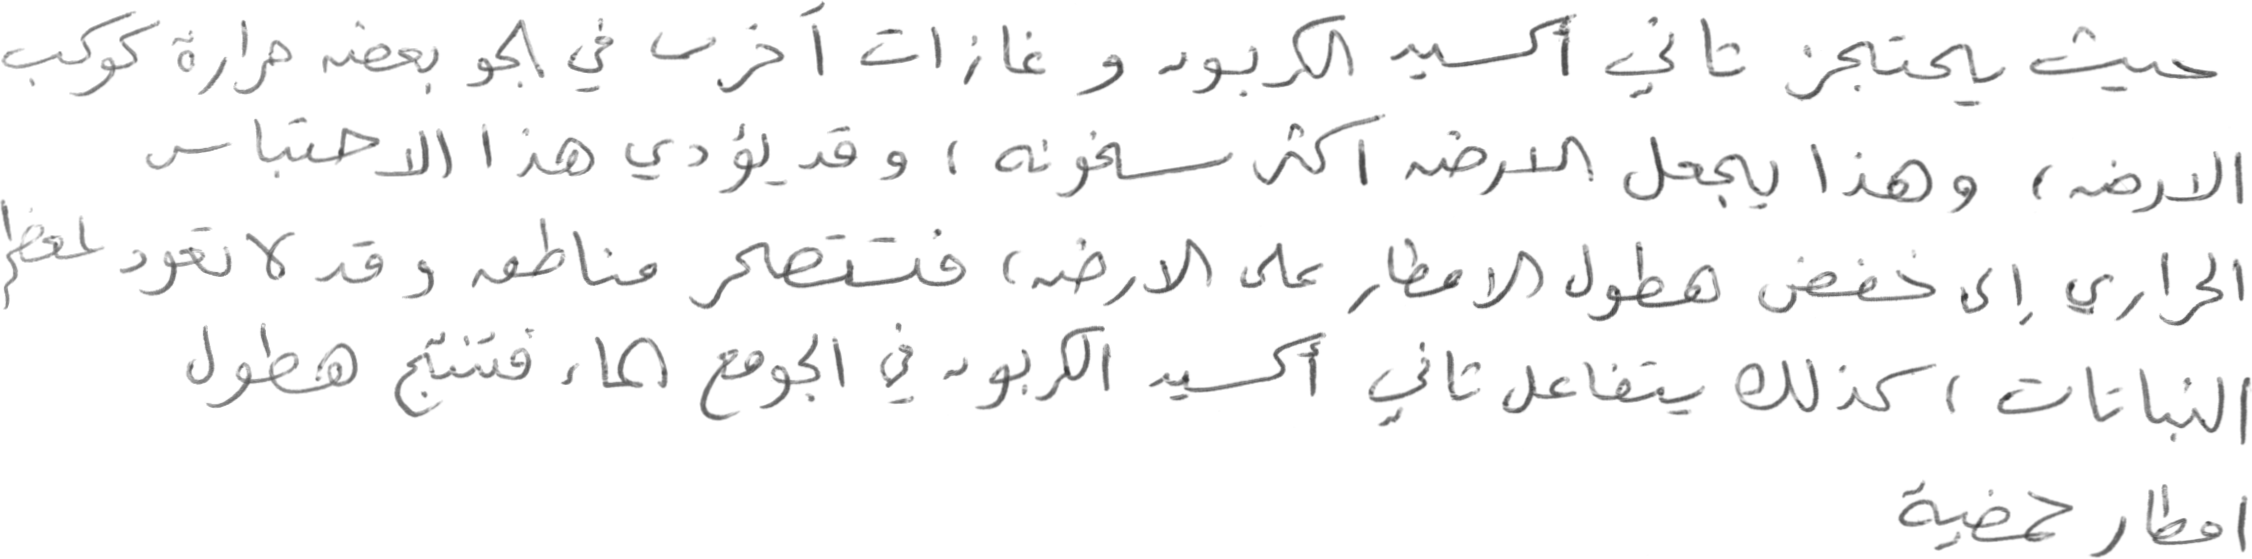 حيث يحتجز ثاني أكسيد الكربون و غازات أخرى في الجو بعض حرارة كوكب
الارض، وهذا يجعل الارض اكثر سخونه، وقد يؤدي هذا الاحتباس
الحراري إلى خفض هطول الامطار على الارض، فتتصحر مناطق وقد لا تعود لمعظم
النباتات، كذلك يتفاعل ثاني أكسيد الكربون في الجو مع الماء فتنتج هطول
امطار حمضية